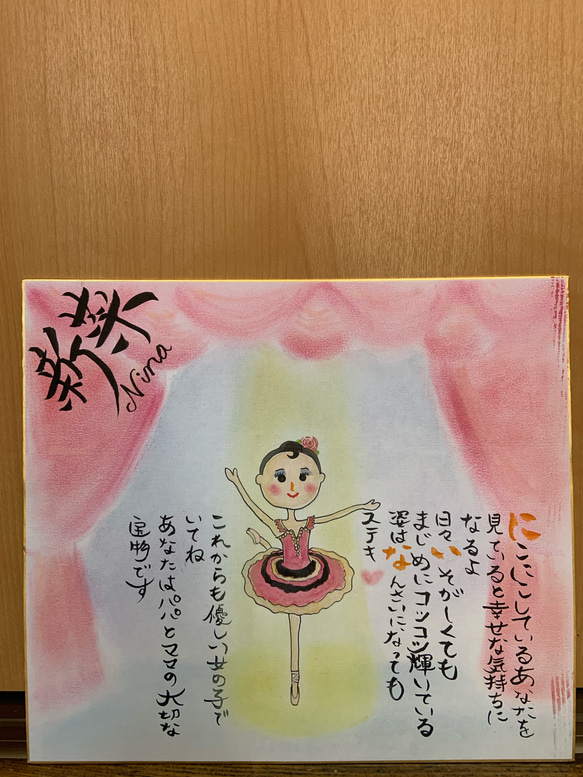 新
Nina
にこにこしているあなたを
見ていると幸せな気持ちに
なるよ
日々いそがしくても
まじめにコツコツ輝いている
姿はなんさいになっても
ステキ
これからも優しい女の子で
いてね
あなたはパパとママの大切な
宝物です